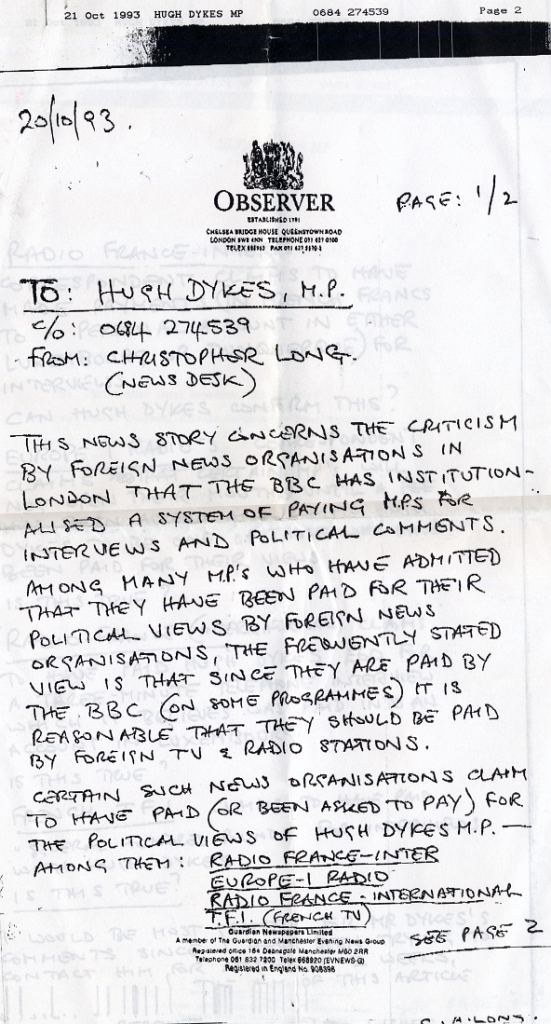 21 Oct 1993 HUGH DYKES MP 0684 274539 Page 2
20/10/93.
OBSERVER
ESTABLISHED 1791
PAGE: 1/2
CHELSEA BRIDGE HOUSE QUEENSTOWN ROAD
LONDON SW8 4NN TELEPHONE 071 627 0700
TO: HUGH DYKES, M.P.
c/o: 0684 274539
FROM: CHRISTOPHER LONG.
(NEWS DESK)
THIS NEWS STORY CONCERNS THE CRITICISM
BY FOREIGN NEWS ORGANISATIONS IN
LONDON THAT THE BBC HAS INSTITUTION-
ALISED A SYSTEM OF PAYING M.P.s FOR
INTERVIEWS AND POLITICAL COMMENTS.
AMONG MANY M.P.'s WHO HAVE ADMITTED
THAT THEY HAVE BEEN PAID FOR THEIR
POLITICAL VIEWS BY FOREIGN NEWS
ORGANISATIONS, THE FREQUENTLY STATED
VIEW IS THAT SINCE THEY ARE PAID BY
THE BBC (ON SOME PROGRAMMES) IT IS
REASONABLE THAT THEY SHOULD BE PAID
BY FOREIGN TV & RADIO STATIONS.
CERTAIN SUCH NEWS ORGANISATIONS CLAIM
TO HAVE PAID (OR BEEN ASKED TO PAY) FOR
THE POLITICAL VIEWS OF HUGH DYKES M.P. —
AMONG THEM: RADIO FRANCE-INTER
EUROPE-1 RADIO
RADIO FRANCE-INTERNATIONAL
T.F.1. (FRENCH TV)
Guardian Newspapers Limited
A member of The Guardian and Manchester Evening News Group
Registered office 164 Deansgate Manchester M60 2RR
Telephone 061 832 7200 Telex 668920 (EVNEWS-G)
Registered in England No. 908396
SEE PAGE 2
C.A. LONG.